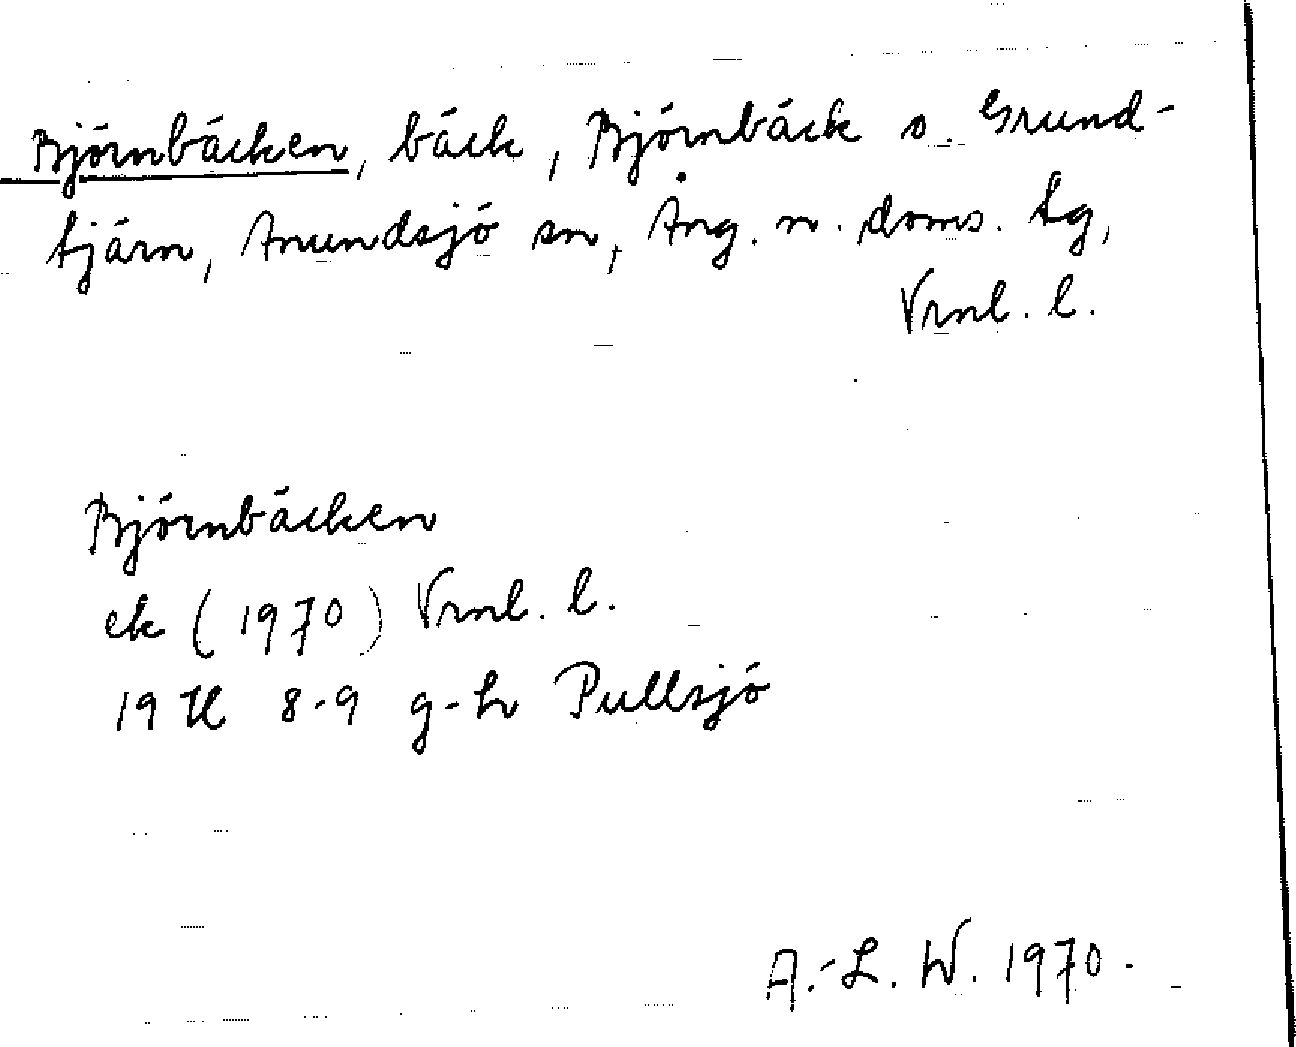 Björnbäcken, bäck, Björnbäck o. Grund-
tjärn, Anundsjö sn, Ång. n. doms. tg,
Vrnl. l.
Björnbäcken
ek (1970) Vrnl. l.
19 H 8-9 g-h Pullsjö
A.-L. W. 1970.